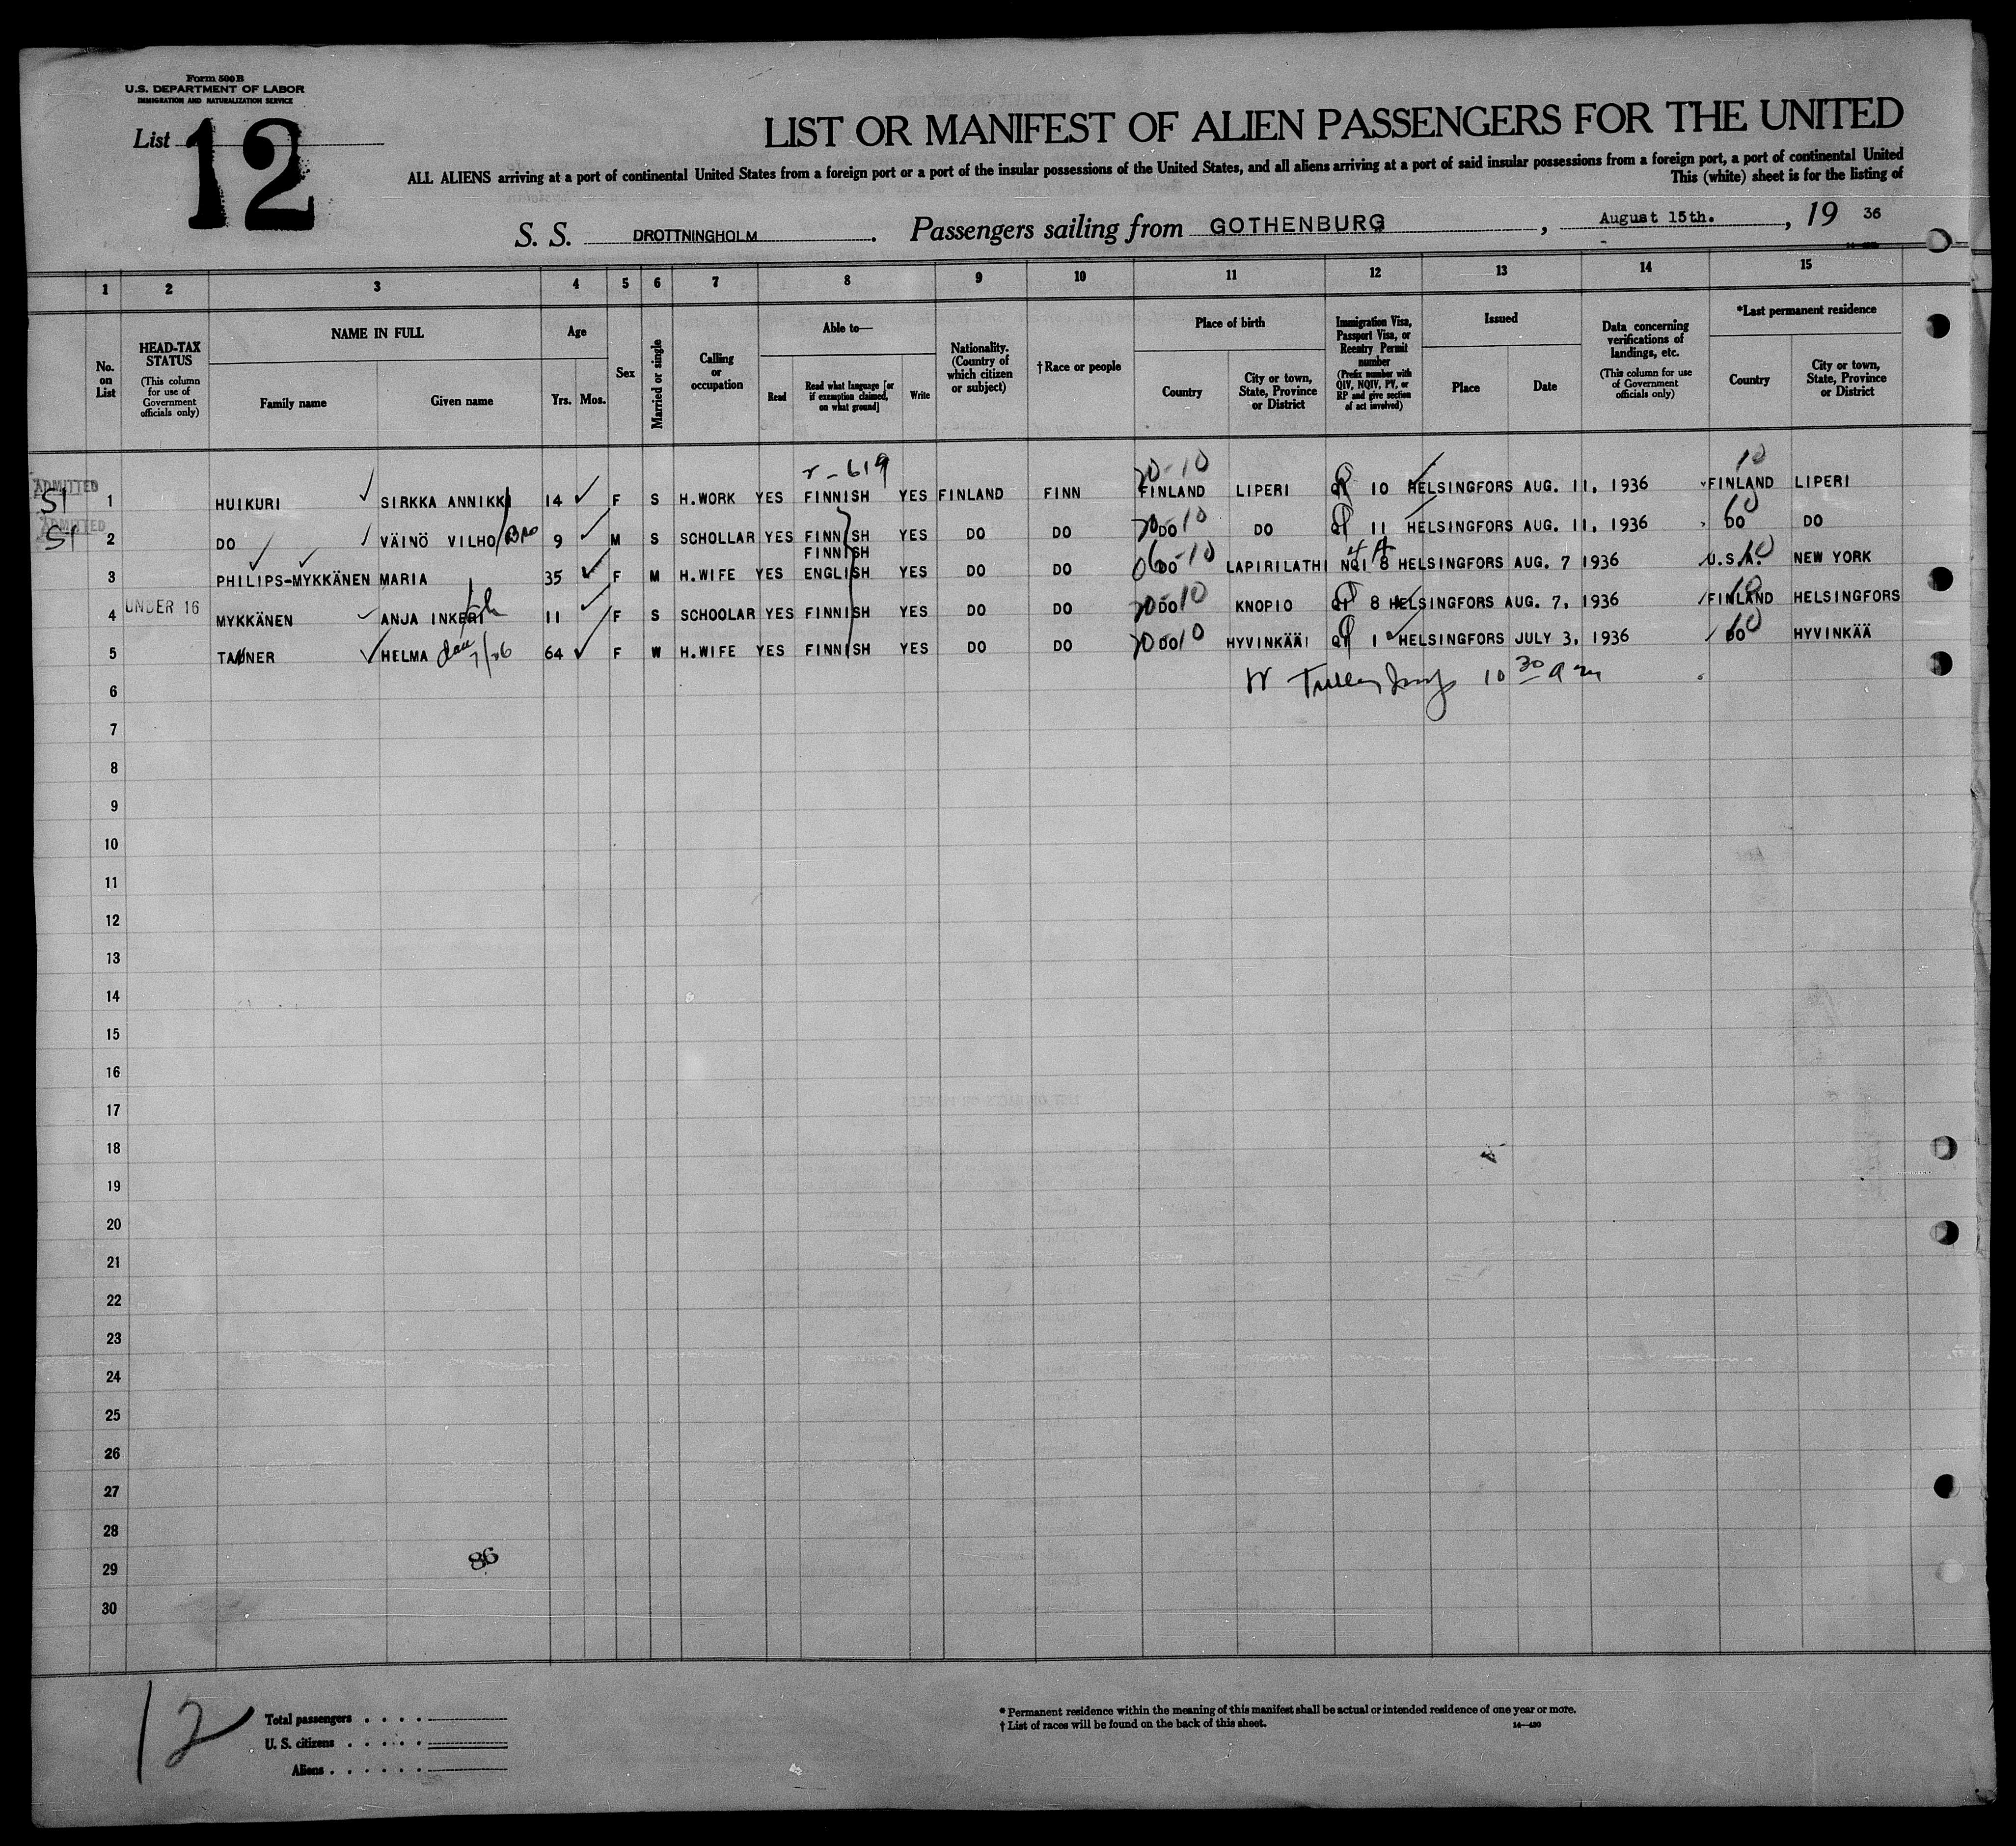 Form 500 B
U.S. DEPARTMENT OF LABOR
IMMIGRATION AND NATURALIZATION SERVICE
List 12
LIST OR MANIFEST OF ALIEN PASSENGERS FOR THE UNITED
ALL ALIENS arriving at a port of continental United States from a foreign port or a port of the insular possessions of the United States, and all aliens arriving at a port of said insular possessions from a foreign port, a port of continental United
This (white) sheet is for the listing of
S. S. DROTTNINGHOLM. Passengers sailing from GOTHENBURG, August 15th., 19 36
1 2 3 4 5 6 7 8 9 10 11 12 13 14 15
No. on List
HEAD-TAX STATUS
(This column for use of Government officials only)
NAME IN FULL
Family name Given name
Age
Yrs. Mos.
Sex
Married or single
Calling or occupation
Able to—
Read
Read what language [or if exemption claimed, on what ground]
Write
Nationality. (Country of which citizen or subject)
†Race or people
Place of birth
Country
City or town, State, Province or District
Immigration Visa, Passport Visa, or Reentry Permit number
(Prefix number with QIV, NQIV, PV, or RP and give section of act involved)
Issued
Place Date
Data concerning verifications of landings, etc.
(This column for use of Government officials only)
*Last permanent residence
Country
City or town, State, Province or District
r-619 20-10 10
ADMITTED SI 1 HUIKURI SIRKKA ANNIKKI 14 F S H.WORK YES FINNISH YES FINLAND FINN FINLAND LIPERI 10 HELSINGFORS AUG. 11, 1936 FINLAND LIPERI
ADMITTED SI 2 DO VÄINÖ VILHO Bro 9 M S SCHOLLAR YES FINNISH YES DO DO DO DO 11 HELSINGFORS AUG. 11, 1936 DO DO
FINNISH
3 PHILIPS-MYKKÄNEN MARIA 35 F M H.WIFE YES ENGLISH YES DO DO DO LAPIRILATHI NQI 8 HELSINGFORS AUG. 7 1936 U.S.A. NEW YORK
4 UNDER 16 MYKKÄNEN ANJA INKERI ch 11 F S SCHOOLAR YES FINNISH YES DO DO DO KNOPIO QI 8 HELSINGFORS AUG. 7, 1936 FINLAND HELSINGFORS
5 TANNER HELMA 64 F W H.WIFE YES FINNISH YES DO DO DO HYVINKÄÄ QI 1 HELSINGFORS JULY 3, 1936 DO HYVINKÄÄ
6 10 30 a m
7
8
9
10
11
12
13
14
15
16
17
18
19
20
21
22
23
24
25
26
27
28
29
86
30
12
Total passengers . . . .
U. S. citizens . . . . .
Aliens . . . . . .
* Permanent residence within the meaning of this manifest shall be actual or intended residence of one year or more.
† List of races will be found on the back of this sheet.
14—430